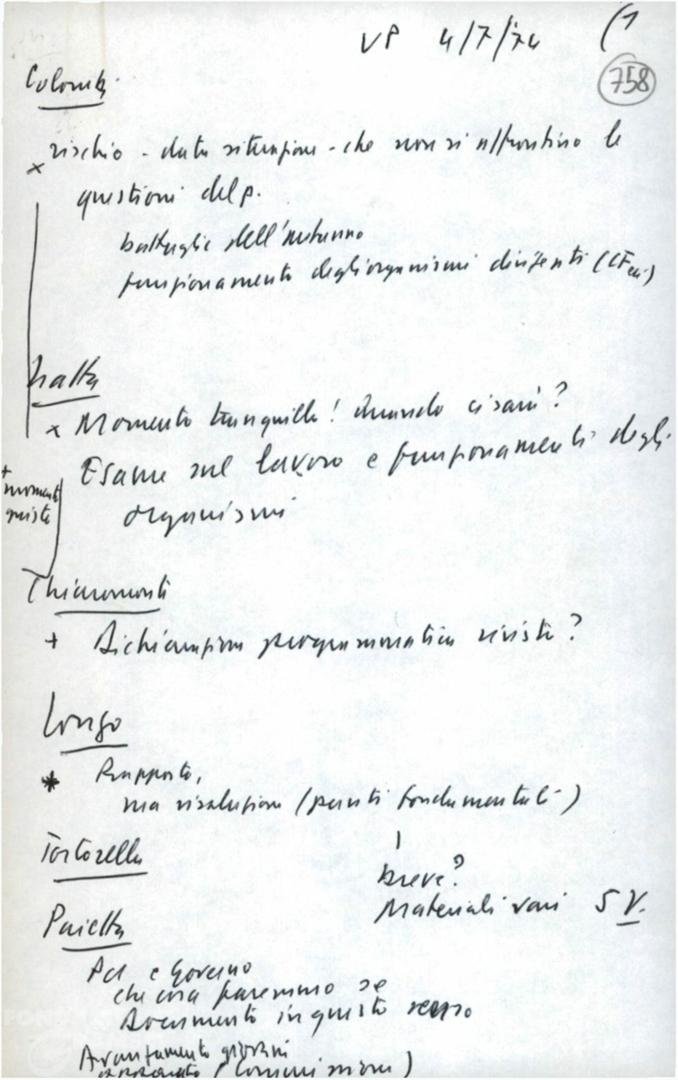 VP 4/7/74 (1
758
Colombi
x rischio - data situazione - che non si affrontino le
questioni del p.
battaglie dell'autunno
funzionamento degli organismi dirigenti (CF ecc)
Natta
x Momento tranquillo! Quando ci sarà?
Esame sul lavoro e funzionamenti degli
organismi
+
momenti
Chiaromonte
+ Dichiarazione programmatica rivista?
Longo
* Rapporto,
ma risoluzione (punti fondamentali)
Tortorella
breve?
Materiali vari 5 V.
Pajetta
Pci e Governo
che cosa faremmo se
Documento in questo senso
Avanzamento giovani
(Commissioni)